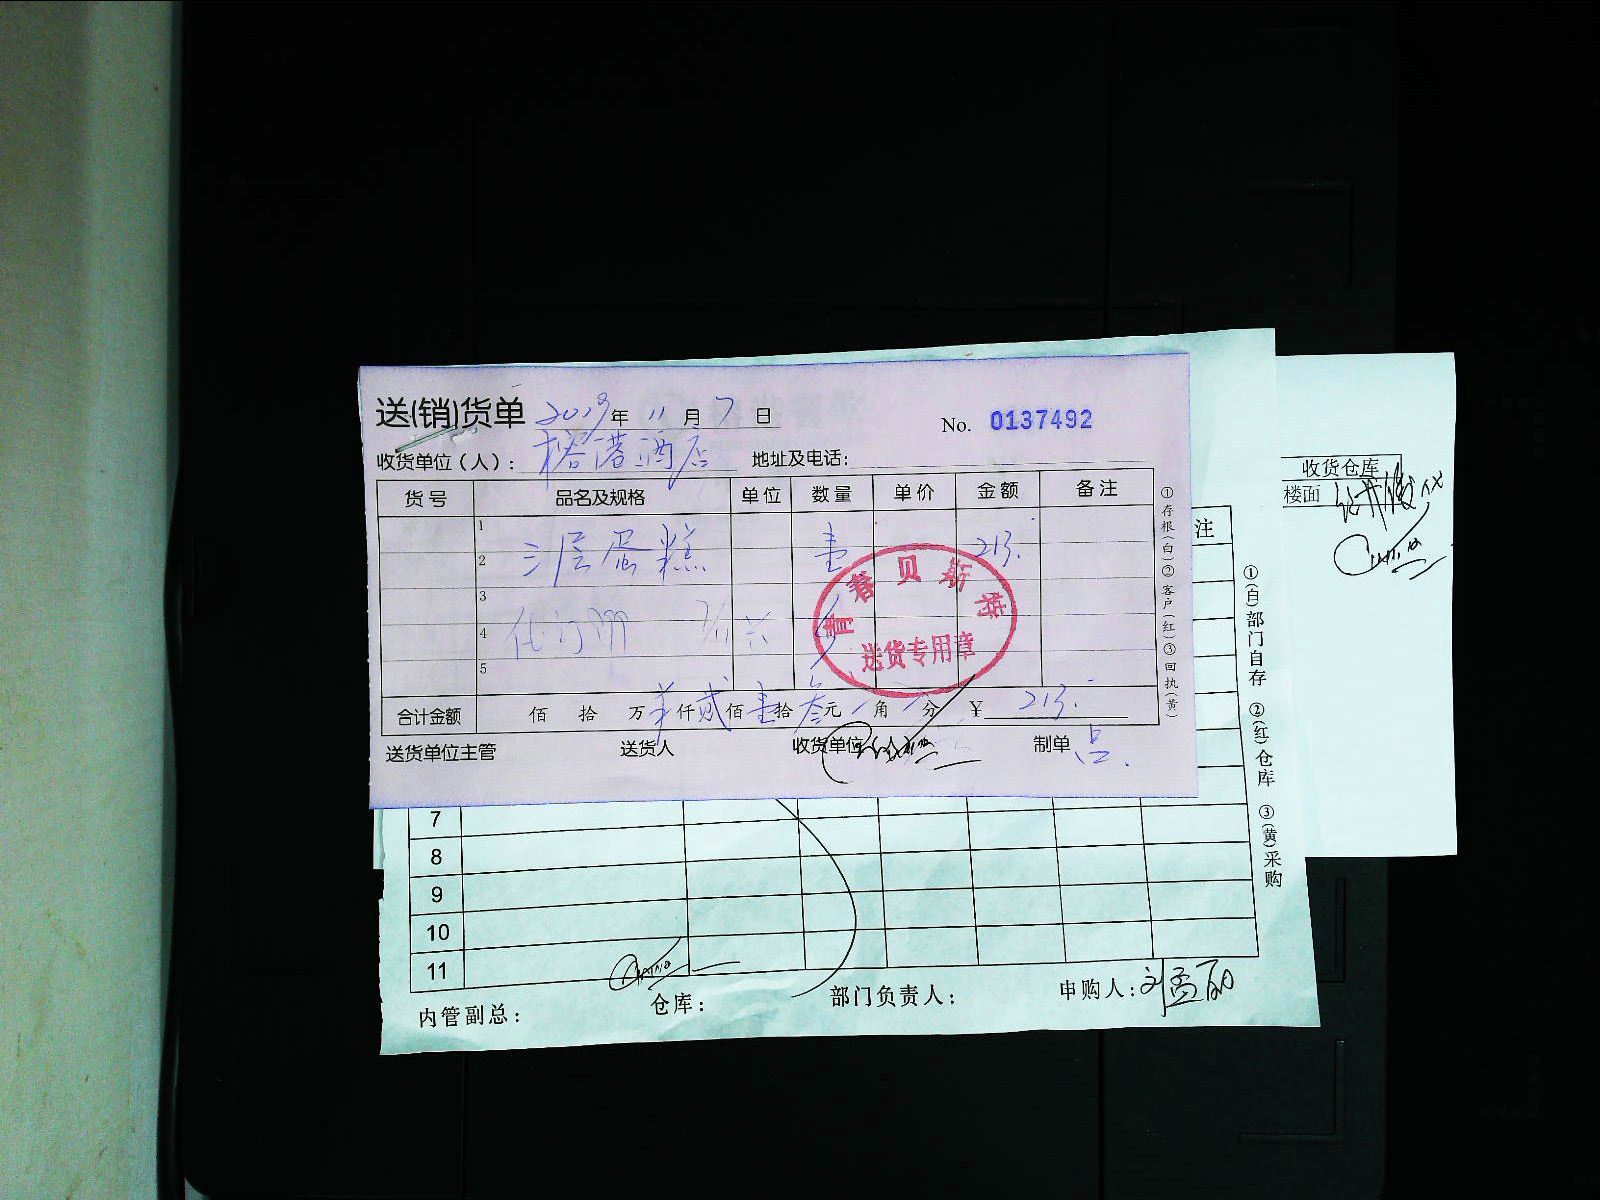 送(销)货单 2019年 11月 7日 No. 0137492
收货单位(人): 榕港酒店 地址及电话:
货号 品名及规格 单位 数量 单价 金额 备注
1
2 三层蛋糕 壹 213.
3
4
5
青春贝斯蒂
送货专用章
合计金额 佰 拾 万 羊仟贰佰壹拾叁元 角 分 ¥ 213.
送货单位主管 送货人 收货单位(人) 制单 吕.
①存根(白)②客户(红)③回执(黄)
收货仓库
楼面
注
7
8
9
10
11
内管副总: 仓库: 部门负责人: 申购人:刘孟丽
①(白)部门自存 ②(红)仓库 ③(黄)采购